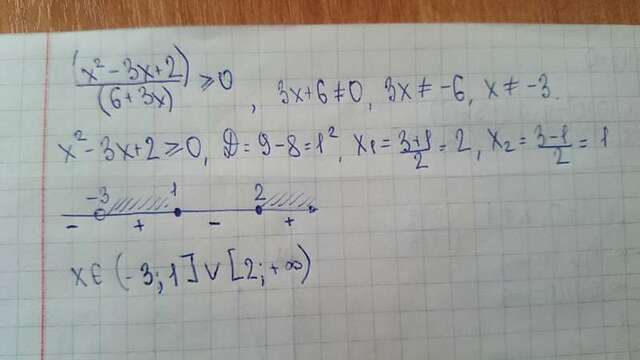 (x² - 3x + 2)/(6 + 3x) ≥ 0, 3x + 6 ≠ 0, 3x ≠ -6, x ≠ -3.
x² - 3x + 2 ≥ 0, D = 9 - 8 = 1², x₁ = (3+1)/2 = 2, x₂ = (3-1)/2 = 1
-3 1 2
- + - +
x ∈ (-3; 1] ∨ [2; +∞)